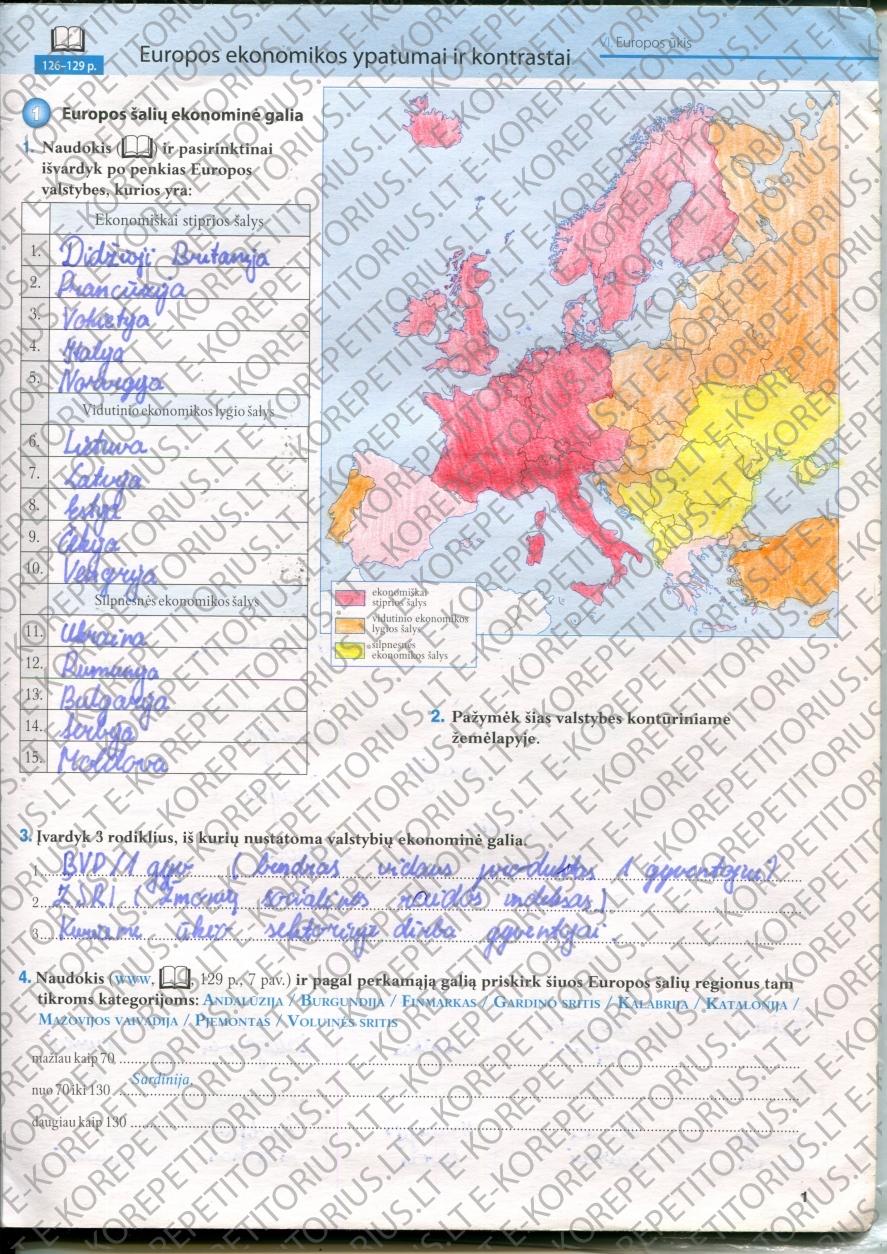 126–129 p.
Europos ekonomikos ypatumai ir kontrastai
VI. Europos ūkis
1 Europos šalių ekonominė galia
1. Naudokis ( ) ir pasirinktinai
išvardyk po penkias Europos
valstybes, kurios yra:
Ekonomiškai stiprios šalys
1. Didžioji Britanija
2. Prancūzija
3. Vokietija
4. Italija
5. Norvegija
Vidutinio ekonomikos lygio šalys
6. Lietuva
7. Latvija
8. Estija
9. Čekija
10. Vengrija
Silpnesnės ekonomikos šalys
11. Ukraina
12. Rumunija
13. Bulgarija
14. Serbija
15. Moldova
ekonomiškai
stiprios šalys
vidutinio ekonomikos
lygios šalys
silpnesnės
ekonomikos šalys
2. Pažymėk šias valstybes kontūriniame
žemėlapyje.
3. Įvardyk 3 rodiklius, iš kurių nustatoma valstybių ekonominė galia.
1. BVP/1 gyv. (bendras vidaus produktas 1 gyventojui)
2. ŽSRI (Žmonių socialinės raidos indeksas)
3. Kuriame ūkio sektoriuje dirba gyventojai.
4. Naudokis (www, , 129 p., 7 pav.) ir pagal perkamąją galią priskirk šiuos Europos šalių regionus tam
tikroms kategorijoms: ANDALŪZIJA / BURGUNDIJA / FINMARKAS / GARDINO SRITIS / KALABRIJA / KATALONIJA /
MAZOVIJOS VAIVADIJA / PJEMONTAS / VOLUINĖS SRITIS
mažiau kaip 70
nuo 70 iki 130 Sardinija,
daugiau kaip 130
1
E-KOREPETITORIUS.LT